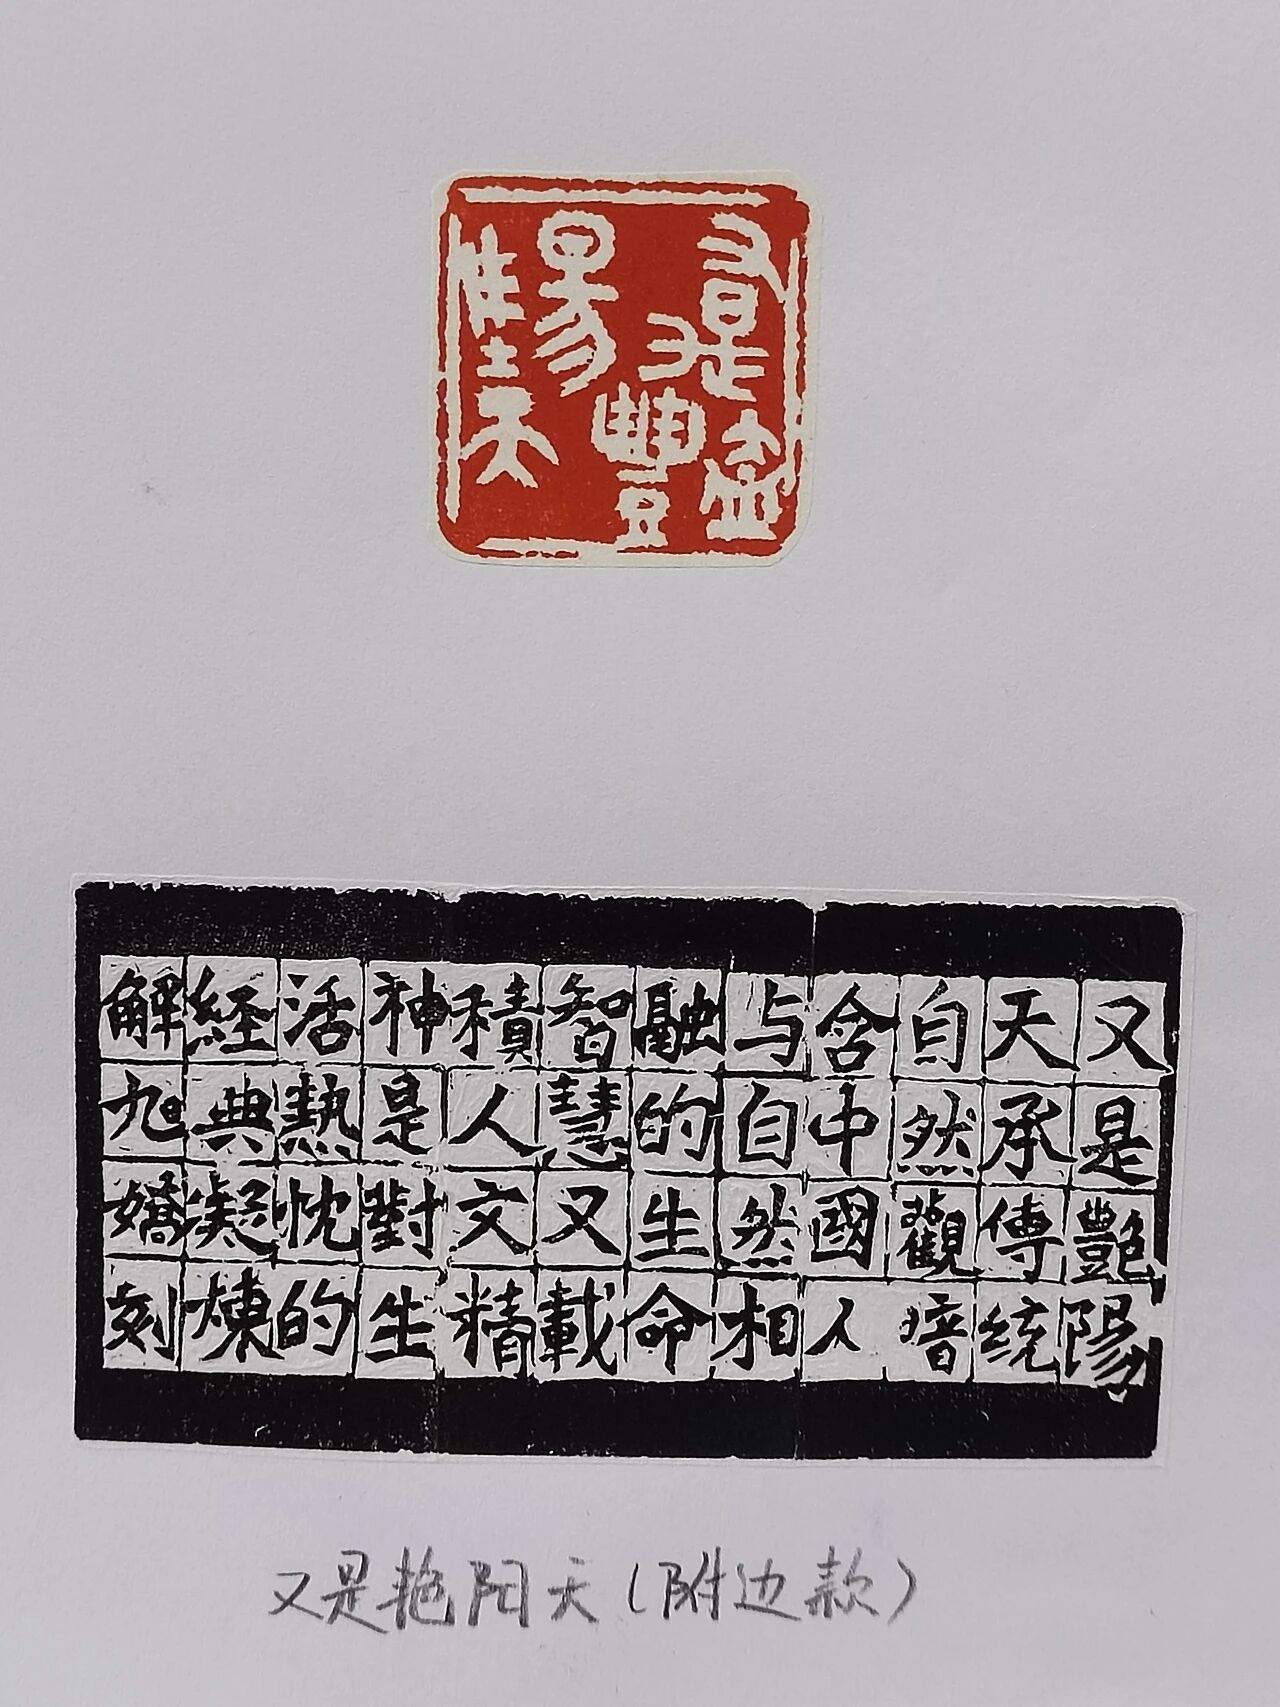 又是豔陽天
又是艷陽
天承傳統
自然觀瘖
含中國人
与自然相
融的生命
智慧又載
積人文精
神是對生
活熱忱的
経典凝煉
解旭嬌刻
又是艳阳天（附边款）